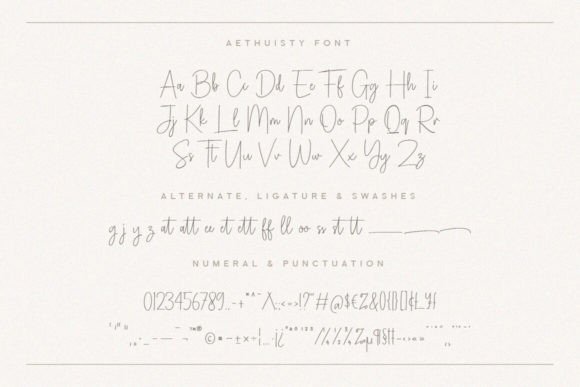 AETHUISTY FONT
Aa Bb Cc Dd Ee Ff Gg Hh Ii
Jj Kk Ll Mm Nn Oo Pp Qq Rr
Ss Tt Uu Vv Ww Xx Yy Zz
ALTERNATE, LIGATURE & SWASHES
g j y z at att ee et ett ff ll oo ss st tt
NUMERAL & PUNCTUATION
0123456789